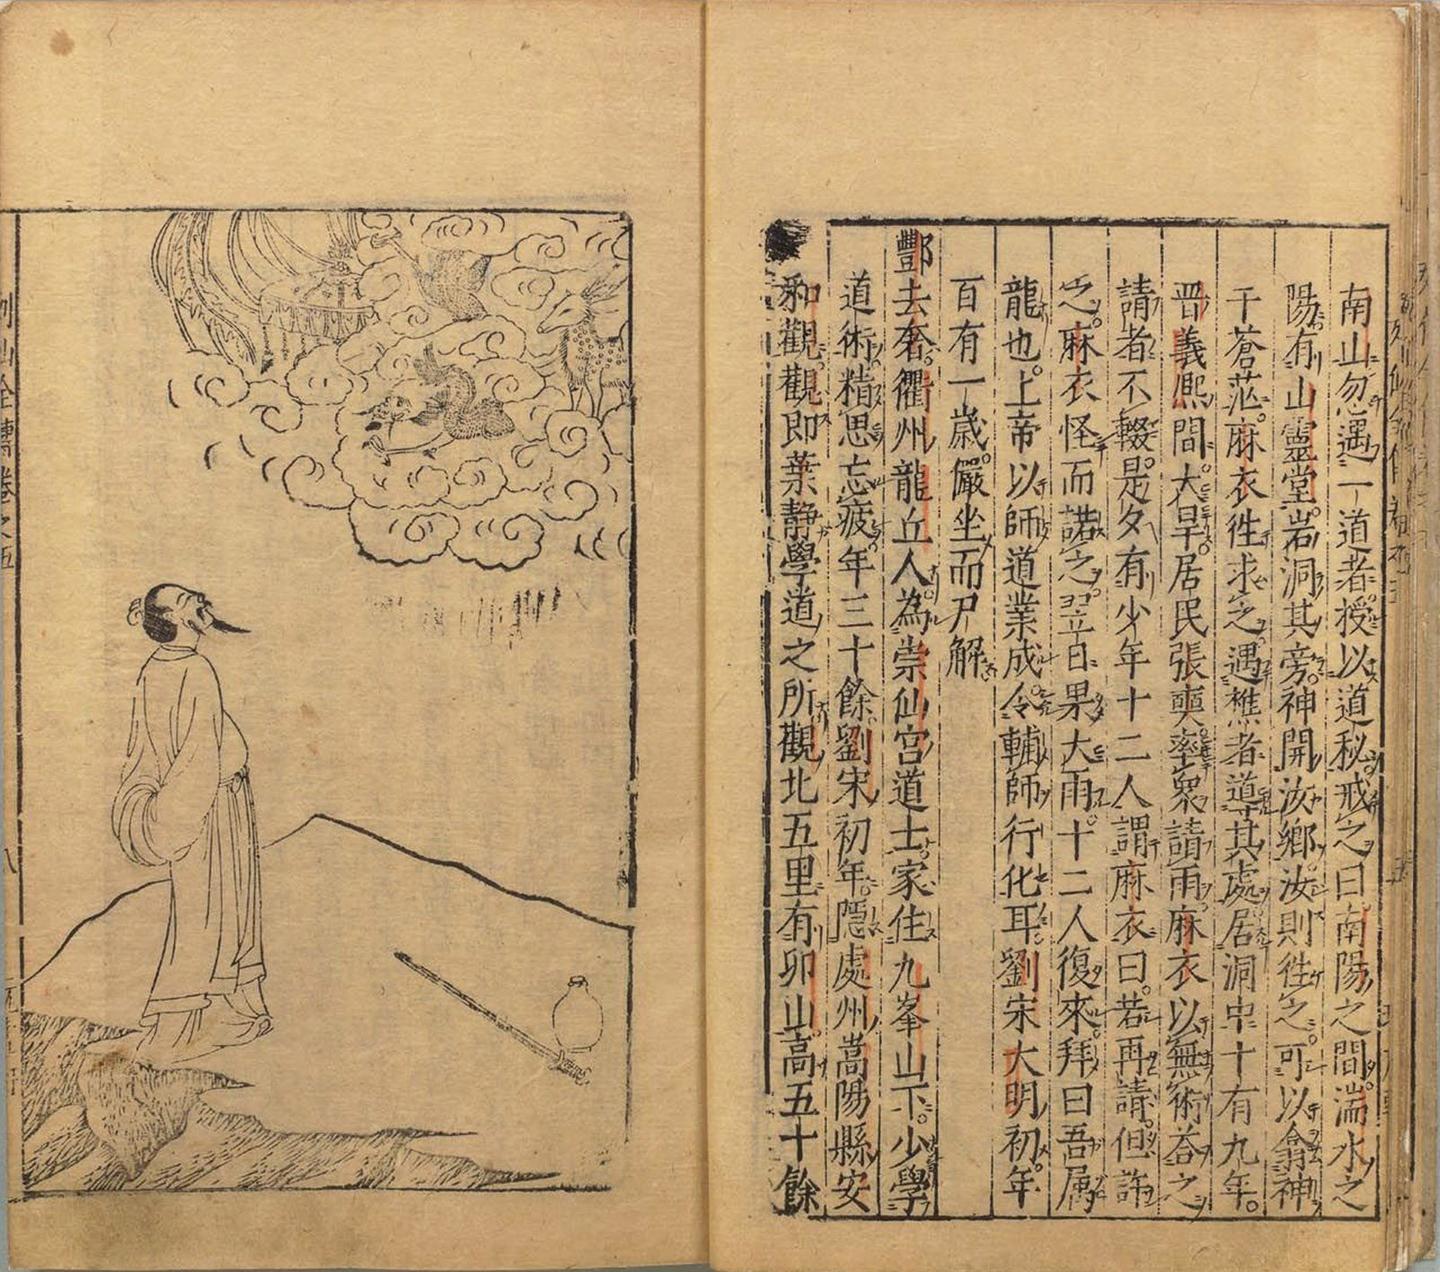 南山忽遇一道者授以道秘戒之曰南陽之間湍水之
陽有山靈堂岩洞其旁神開汝鄉汝則徃之可以翕神
于蒼茫麻衣徃求之遇樵者導其處居洞中十有九年
晋義熈間大旱居民張奭率衆請雨麻衣以無術荅之
請者不輟是夕有少年十二人謂麻衣曰若再請但許
之麻衣怪而諾之翌日果大雨十二人復來拜曰吾属
龍也上帝以師道業成令輔師行化耳劉宋大明初年
百有一歳儼坐而尸解
酆去奢衢州龍丘人為崇仙宮道士家住九峯山下少學
道術精思忘疲年三十餘劉宋初年隱處州蒿陽縣安
和觀觀即葉靜學道之所觀北五里有卯山高五十餘
列仙全傳卷之五
八